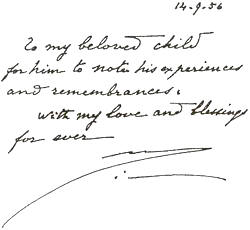 14-9-56
To my beloved child
for him to note his experiences
and remembrances.
with my love and blessings
for ever